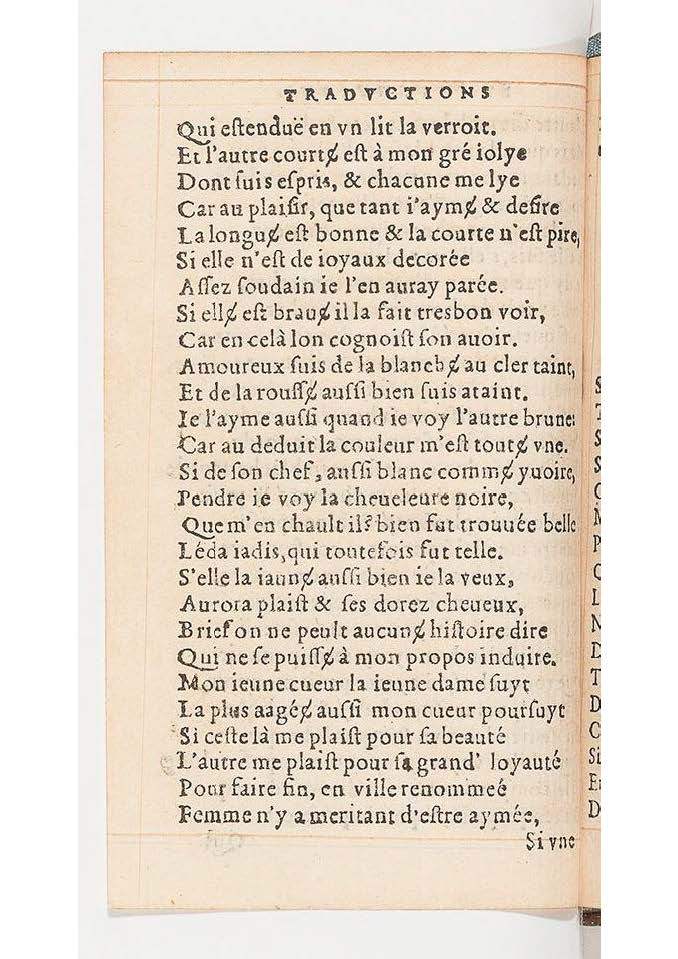 TRADVCTIONS
Qui eſtenduë en vn lit la verroit.
Et l'autre courtɇ eſt à mon gré iolye
Dont ſuis eſpris, & chacune me lye
Car au plaiſir, que tant i'aymɇ & deſire
La longuɇ eſt bonne & la courte n'eſt pire,
Si elle n'eſt de ioyaux decorée
Aſſez ſoudain ie l'en auray parée.
Si ellɇ eſt brauɇ il la fait tresbon voir,
Car en celà lon cognoiſt ſon auoir.
Amoureux ſuis de la blanchɇ au cler taint,
Et de la rouſſɇ auſſi bien ſuis ataint.
Ie l'ayme auſſi quand ie voy l'autre brune:
Car au deduit la couleur m'eſt toutɇ vne.
Si de ſon chef, auſſi blanc commɇ yuoire,
Pendre ie voy la cheueleure noire,
Que m'en chault il? bien fut trouuée belle
Léda iadis, qui toutefois fut telle.
S'elle la iaunɇ auſſi bien ie la veux,
Aurora plaiſt & ſes dorez cheueux,
Brief on ne peult aucunɇ hiſtoire dire
Qui ne ſe puiſſɇ à mon propos induire.
Mon ieune cueur la ieune dame ſuyt
La plus aagéɇ auſſi mon cueur pourſuyt
Si ceſte là me plaiſt pour ſa beauté
L'autre me plaiſt pour ſa grand' loyauté
Pour faire fin, en ville renommeé
Femme n'y a meritant d'eſtre aymée,
Si vne